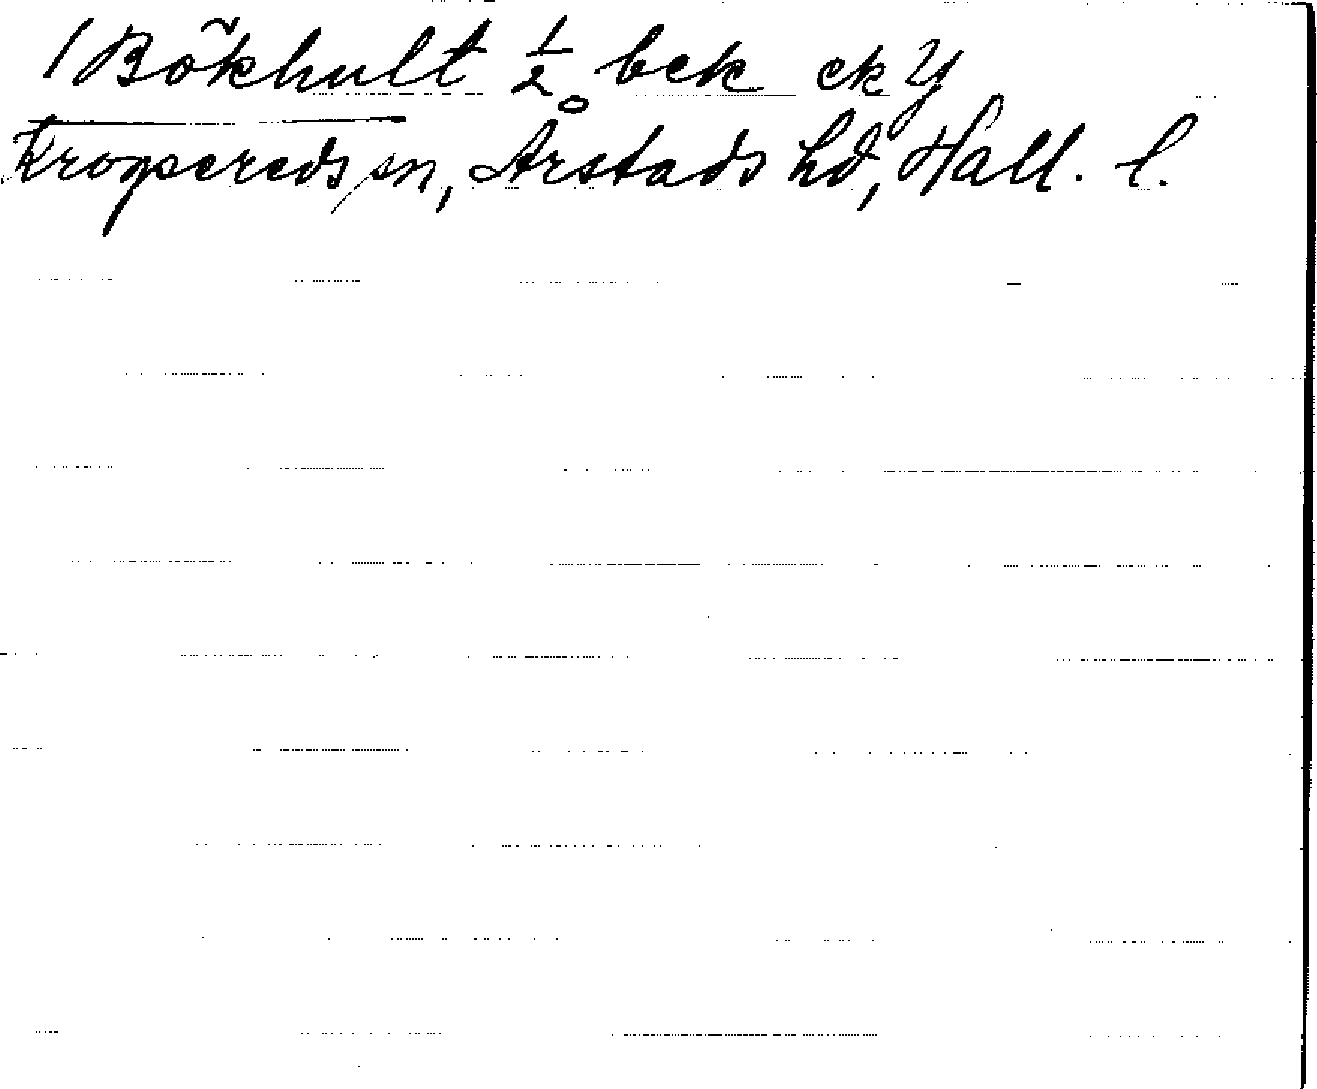 / Bökhult 1/2 bck ck Y
Kropsereds sn, Årstads hd, Hall. l.